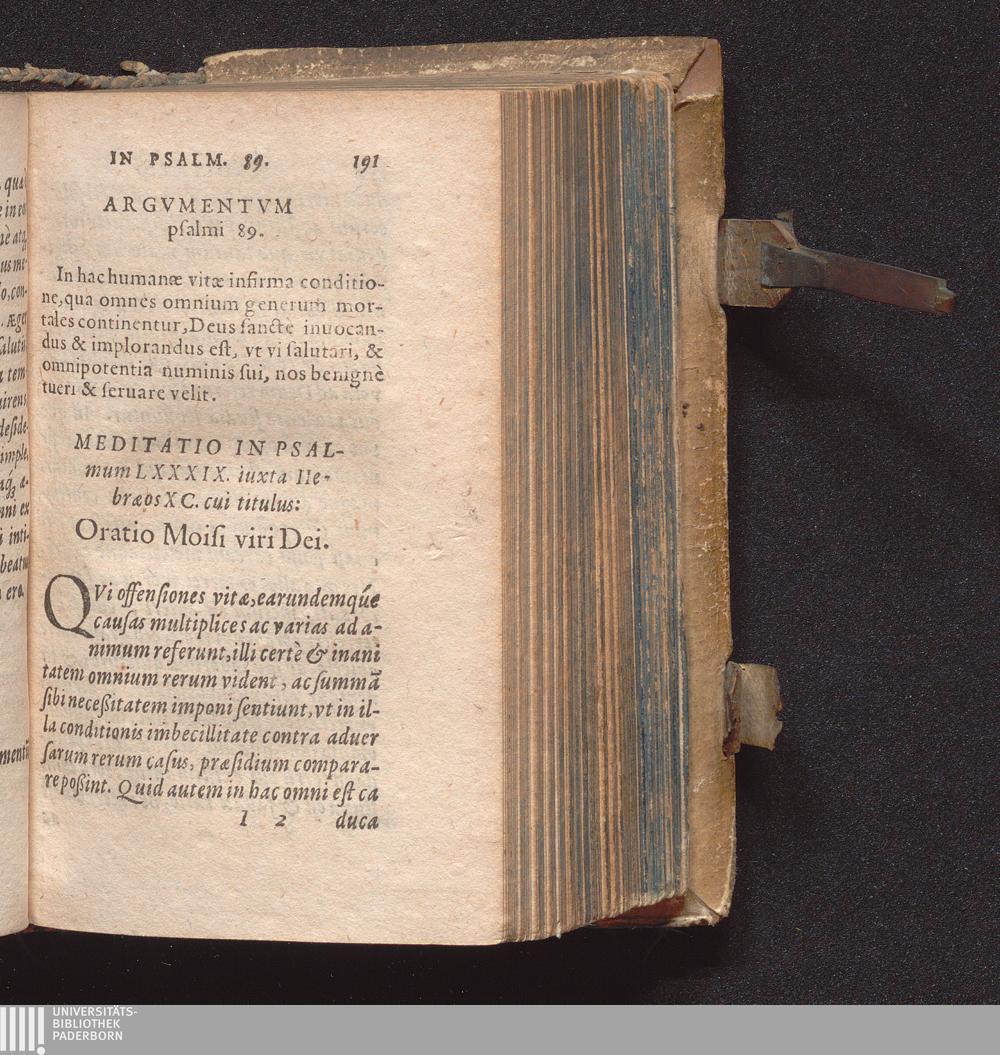 IN PSALM. 89. 191
ARGVMENTVM
pſalmi 89.
In hac humanæ vitæ infirma conditio-
ne, qua omnes omnium generum mor-
tales continentur, Deus ſanctè inuocan-
dus & implorandus eſt, vt vi ſalutari, &
omnipotentia numinis ſui, nos benignè
tueri & ſeruare velit.
MEDITATIO IN PSAL-
mum LXXXIX. iuxta He-
bræos XC. cui titulus:
Oratio Moiſi viri Dei.
QVi offenſiones vitæ, earundemq́ue
cauſas multiplices ac varias ad a-
nimum referunt, illi certè & inani
tatem omnium rerum vident, ac ſummã
ſibi neceßitatem imponi ſentiunt, vt in il-
la conditionis imbecillitate contra aduer
ſarum rerum caſus, præſidium compara-
re poßint. Quid autem in hac omni eſt ca
I 2 duca
qua
us me-
o, con-
. Æger
a tem
deſide-
imple,
a-
ni ex
i inti-
beatu
ero.
menti
UNIVERSITÄTS-
BIBLIOTHEK
PADERBORN